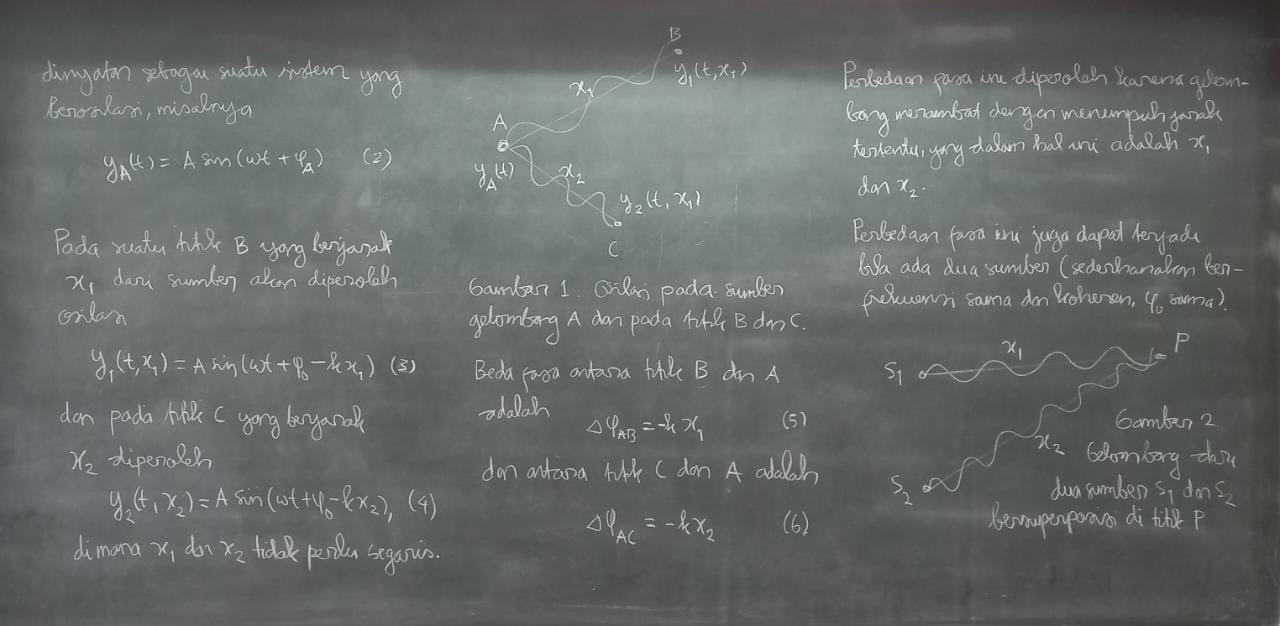 dinyatan sebagai suatu sistem yang
berosilasi, misalnya
y_A(t) = A sin (ωt + φ_A) (2)
Pada suatu titik B yang berjarak
x₁ dari sumber akan diperoleh
osilasi
y₁(t,x₁) = A sin (ωt + φ₀ - kx₁) (3)
dan pada titik C yang berjarak
x₂ diperoleh
y₂(t, x₂) = A sin (ωt + φ₀ - kx₂), (4)
dimana x₁ dan x₂ tidak perlu segaris.
B
y₁(t,x₁)
x₁
A
y_A(t)
x₂
y₂(t, x₁)
C
Gambar 1. Osilasi pada sumber
gelombang A dan pada titik B dan C.
Beda fasa antara titik B dan A
adalah
Δφ_AB = -k x₁ (5)
dan antara titik C dan A adalah
Δφ_AC = -kx₂ (6)
Perbedaan fasa ini diperoleh karena gelom-
bang merambat dengan menempuh jarak
tertentu, yang dalam hal ini adalah x₁
dan x₂.
Perbedaan fasa ini juga dapat terjadi
bila ada dua sumber (sederhanakan ber-
frekuensi sama dan koheren, φ₀ sama).
S₁ x₁ P
S₂ x₂
Gambar 2
Gelombang dari
dua sumber S₁ dan S₂
bersuperposisi di titik P